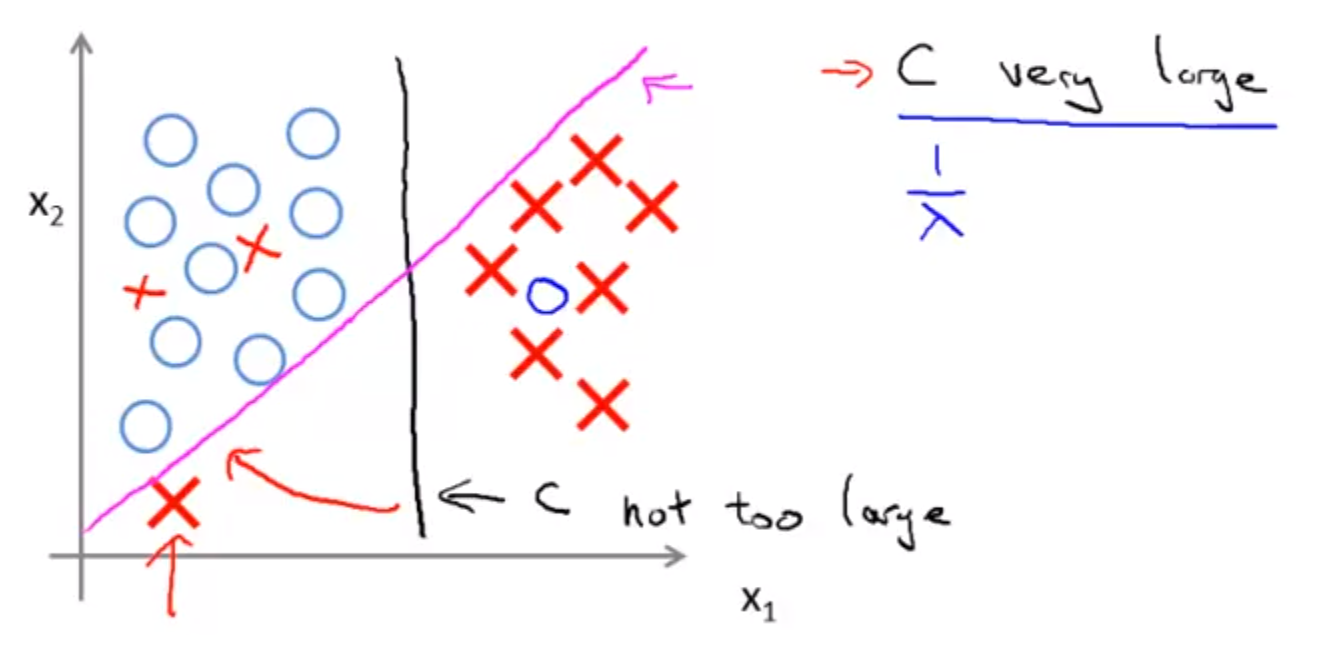 C very large
1/λ
x₂
C not too large
x₁